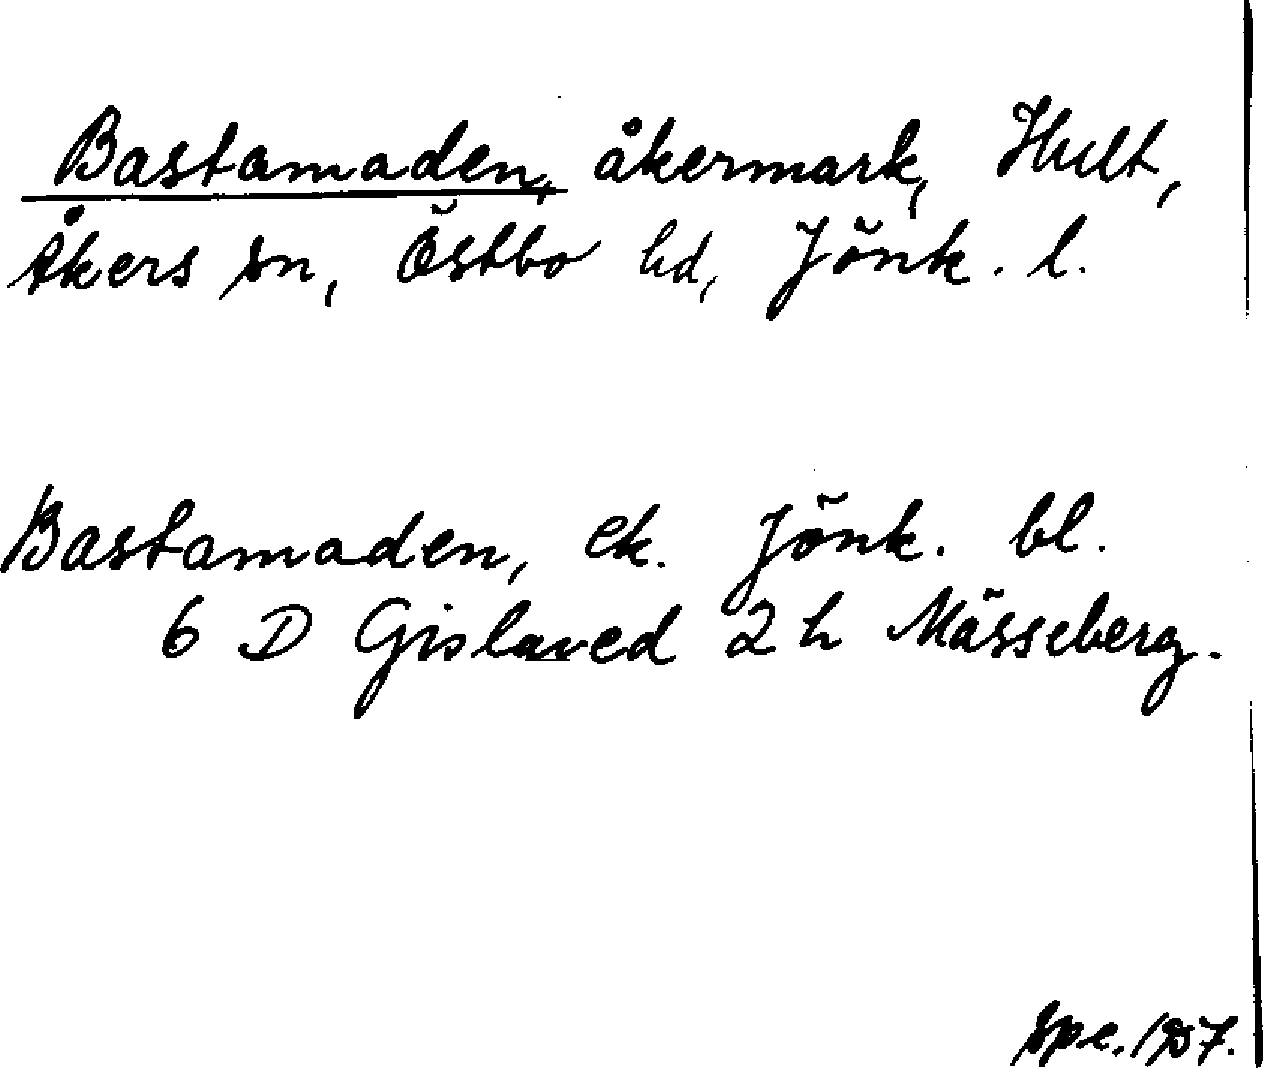 Bastamaden, åkermark, Hult,
Åkers sn, Östbo hd, Jönk. l.
Bastamaden, ek. Jönk. bl.
6 D Gislaved 2 h Mässeberg.
Spe. 1957.